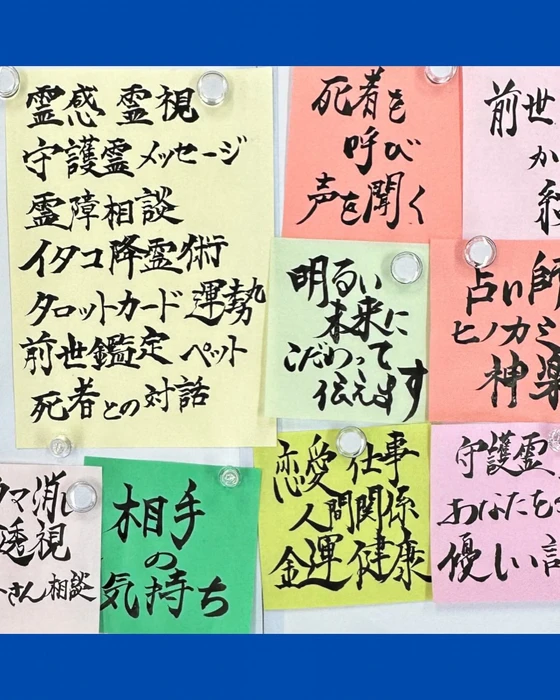 霊感 霊視
守護霊メッセージ
霊障相談
イタコ降霊術
タロットカード 運勢
前世鑑定 ペット
死者との対話
死者を
呼び
声を聞く
前世
か
明るい
未来に
こだわって
伝えます
占い師
ヒノカミ
神楽
恋愛 仕事
人間関係
金運 健康
守護霊
あなたを
優しい
相手
の
気持ち
マ消し
透視
さん相談